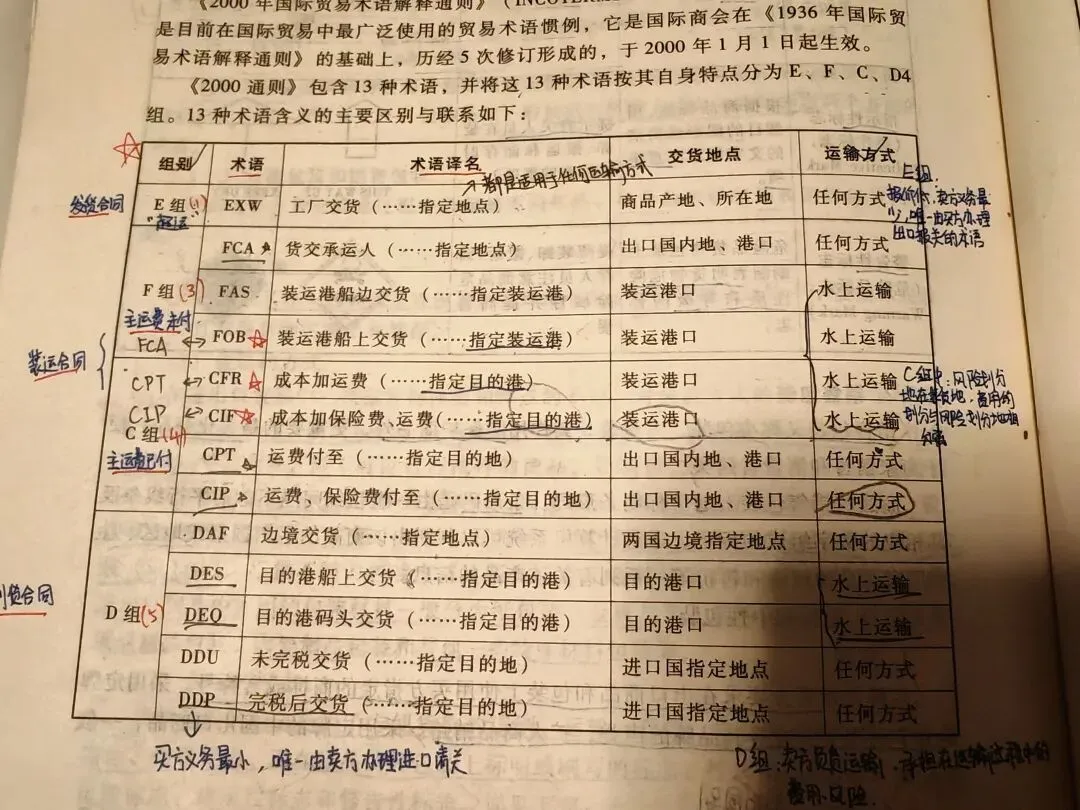 《2000 年国际贸易术语解释通则》
是目前在国际贸易中最广泛使用的贸易术语惯例,它是国际商会在《1936 年国际贸
易术语解释通则》的基础上,历经 5 次修订形成的,于 2000 年 1 月 1 日起生效。
《2000 通则》包含 13 种术语,并将这 13 种术语按其自身特点分为 E、F、C、D4
组。13 种术语含义的主要区别与联系如下:
组别 术语 术语译名 交货地点 运输方式
都是适用于任何运输方式
发货合同
E 组 (1) EXW 工厂交货(……指定地点) 商品产地、所在地 任何方式
"起运"
E组.
报价低,卖方义务最
小,唯一由买方办理
出口报关的术语
FCA 货交承运人(……指定地点) 出口国内地、港口 任何方式
F 组 (3) FAS 装运港船边交货(……指定装运港) 装运港口 水上运输
主运费未付
FCA FOB 装运港船上交货(……指定装运港) 装运港口 水上运输
装运合同
CPT CFR 成本加运费(……指定目的港) 装运港口 水上运输
CIP CIF 成本加保险费、运费(……指定目的港) 装运港口 水上运输
C 组 (4)
主运费已付
C组中:风险划分
CPT 运费付至(……指定目的地) 出口国内地、港口 任何方式
CIP 运费、保险费付至(……指定目的地) 出口国内地、港口 任何方式
DAF 边境交货(……指定地点) 两国边境指定地点 任何方式
DES 目的港船上交货(……指定目的港) 目的港口 水上运输
到货合同
D 组 (5) DEQ 目的港码头交货(……指定目的港) 目的港口 水上运输
DDU 未完税交货(……指定目的地) 进口国指定地点 任何方式
DDP 完税后交货(……指定目的地) 进口国指定地点 任何方式
买方义务最小,唯一由卖方办理进口清关
D组:卖方负责运输,承担在运输过程中的
费用、风险.